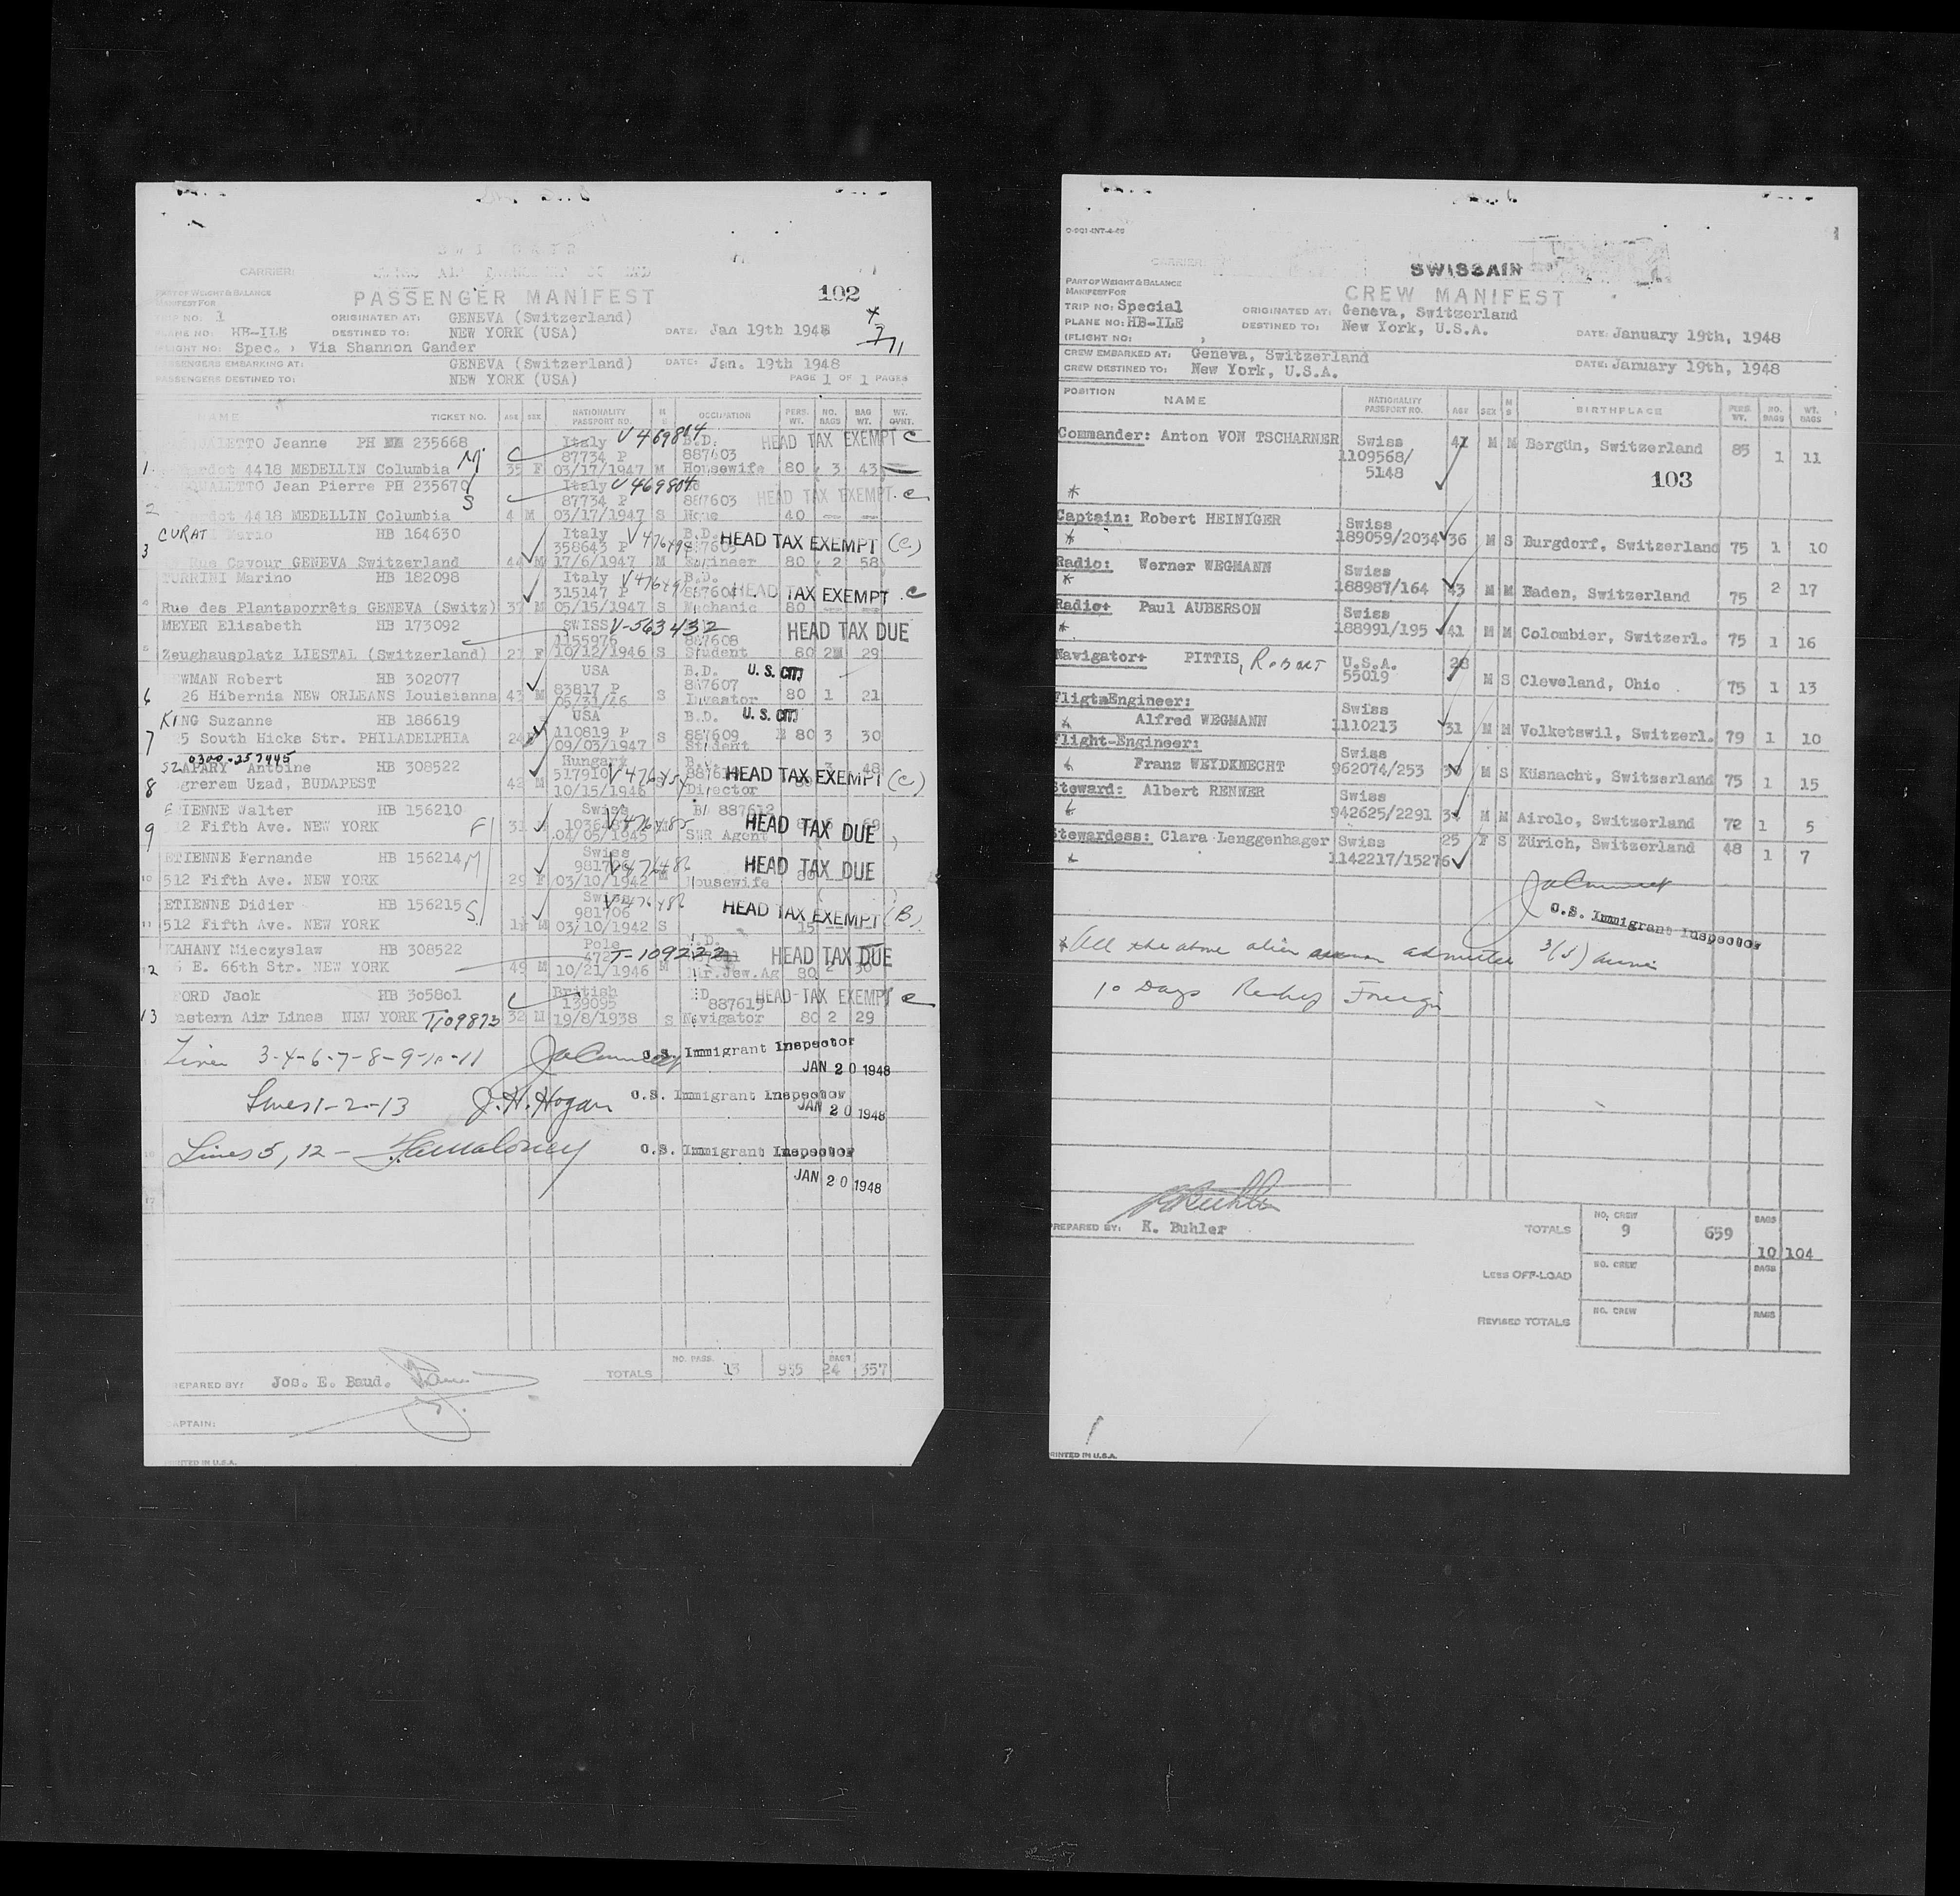 CARRIER:
PART OF WEIGHT & BALANCE
MANIFEST FOR
PASSENGER MANIFEST 102
TRIP NO. 1 ORIGINATED AT: GENEVA (Switzerland)
PLANE NO. HB-ILE DESTINED TO: NEW YORK (USA) DATE: Jan 19th 1948
FLIGHT NO: Spec., Via Shannon Gander
PASSENGERS EMBARKING AT: GENEVA (Switzerland) DATE: Jan. 19th 1948
PASSENGERS DESTINED TO: NEW YORK (USA) PAGE 1 OF 1 PAGES
NAME TICKET NO. AGE SEX NATIONALITY PASSPORT NO. M S OCCUPATION PERS. WT. NO. BAGS BAG WT. WT. OVNT.
Jeanne PH 235668 Italy V 469814 B.D. HEAD TAX EXEMPT C
87734 P 887603
1 4418 MEDELLIN Columbia M 35 F 03/17/1947 M Housewife 80 3 43
Jean Pierre PH 235670 Italy V 469804 HEAD TAX EXEMPT C
S 87734 P 887603
2 4418 MEDELLIN Columbia 4 M 03/17/1947 S None 40
CURAT Mario HB 164630 Italy B.D. HEAD TAX EXEMPT (C)
3 358643 P
Rue Cavour GENEVA Switzerland 44 M 17/6/1947 M Engineer 80 2 58
TURRINI Marino HB 182098 Italy B.D. HEAD TAX EXEMPT C
315147 P 887604
Rue des Plantaporrêts GENEVA (Switz) 37 M 05/15/1947 S Mechanic 80
MEYER Elisabeth HB 173092 SWISS V-563432 HEAD TAX DUE
1155976 887608
5 Zeughausplatz LIESTAL (Switzerland) 21 F 10/12/1946 S Student 80 2 29
Robert HB 302077 USA B.D. U. S. CIT.
83817 P 887607
6 26 Hibernia NEW ORLEANS Louisianna 43 M 05/31/46 S Investor 80 1 21
KING Suzanne HB 186619 USA B.D. U. S. CIT.
110819 P 887609
7 5 South Hicks Str. PHILADELPHIA 24 09/03/1947 S Student 80 3 30
0300-257445
SZAPARY Antoine HB 308522 Hungary HEAD TAX EXEMPT (C)
517910
8 Uzad, BUDAPEST 42 M 10/15/1946 Director
ETIENNE Walter HB 156210 Swiss 887612 HEAD TAX DUE
9 Fifth Ave. NEW YORK 31 04/05/1945 SWR Agent
ETIENNE Fernande HB 156214 M Swiss HEAD TAX DUE
10 512 Fifth Ave. NEW YORK 29 F 03/10/1942 M Housewife
ETIENNE Didier HB 156215 S. Swiss HEAD TAX EXEMPT (B)
981706
11 512 Fifth Ave. NEW YORK M 03/10/1942 S 15
KAHANY Mieczyslaw HB 308522 Pole T-109222 HEAD TAX DUE
12 E. 66th Str. NEW YORK 49 M 10/21/1946 M Dir.Jew.Ag 80 2 30
FORD Jack HB 305801 British HEAD TAX EXEMPT C
139095 887615
13 Eastern Air Lines NEW YORK T109873 32 M 19/8/1938 S Navigator 80 2 29
Lines 3-4-6-7-8-9-10-11 U.S. Immigrant Inspector
JAN 20 1948
Lines 1-2-13 J.H. Hogan U.S. Immigrant Inspector
JAN 20 1948
Lines 5, 12 - Maloney U.S. Immigrant Inspector
JAN 20 1948
TOTALS NO. PASS. 13 955 BAGS 24 357
PREPARED BY: Jos. E. Baud.
CAPTAIN:
PRINTED IN U.S.A.
CARRIER: SWISSAIR
PART OF WEIGHT & BALANCE
MANIFEST FOR
CREW MANIFEST
TRIP NO: Special ORIGINATED AT: Geneva, Switzerland
PLANE NO: HB-ILE DESTINED TO: New York, U.S.A. DATE: January 19th, 1948
(FLIGHT NO:
CREW EMBARKED AT: Geneva, Switzerland
CREW DESTINED TO: New York, U.S.A. DATE: January 19th, 1948
POSITION NAME NATIONALITY PASSPORT NO. AGE SEX M S BIRTHPLACE PERS. WT. NO. BAGS WT. BAGS
Commander: Anton VON TSCHARNER Swiss 1109568/5148 41 M M Bergün, Switzerland 85 1 11
103
*
Captain: Robert HEINIGER Swiss 189059/2034 36 M S Burgdorf, Switzerland 75 1 10
*
Radio: Werner WEGMANN Swiss 188987/164 43 M M Baden, Switzerland 75 2 17
*
Radio+ Paul AUBERSON 188991/195 41 M M Colombier, Switzerl. 75 1 16
*
Navigator+ PITTIS, Robert U.S.A. 55019 28 M S Cleveland, Ohio 75 1 13
FligtmEngineer:
* Alfred WEGMANN Swiss 1110213 31 M M Volketswil, Switzerl. 79 1 10
Flight-Engineer:
* Franz WEYDKNECHT Swiss 962074/253 M S Küsnacht, Switzerland 75 1 15
Steward: Albert RENNER Swiss 942625/2291 M M Airolo, Switzerland 72 1 5
*
Stewardess: Clara Lenggenhager Swiss 1142217/15276 25 F S Zürich, Switzerland 48 1 7
*
U.S. Immigrant Inspector
* All the above alien admitted 3(5)
10 Days Foreign
PREPARED BY: K. Buhler
TOTALS NO. CREW 9 659 BAGS 10 104
LESS OFF-LOAD NO. CREW BAGS
REVISED TOTALS NO. CREW BAGS
PRINTED IN U.S.A.